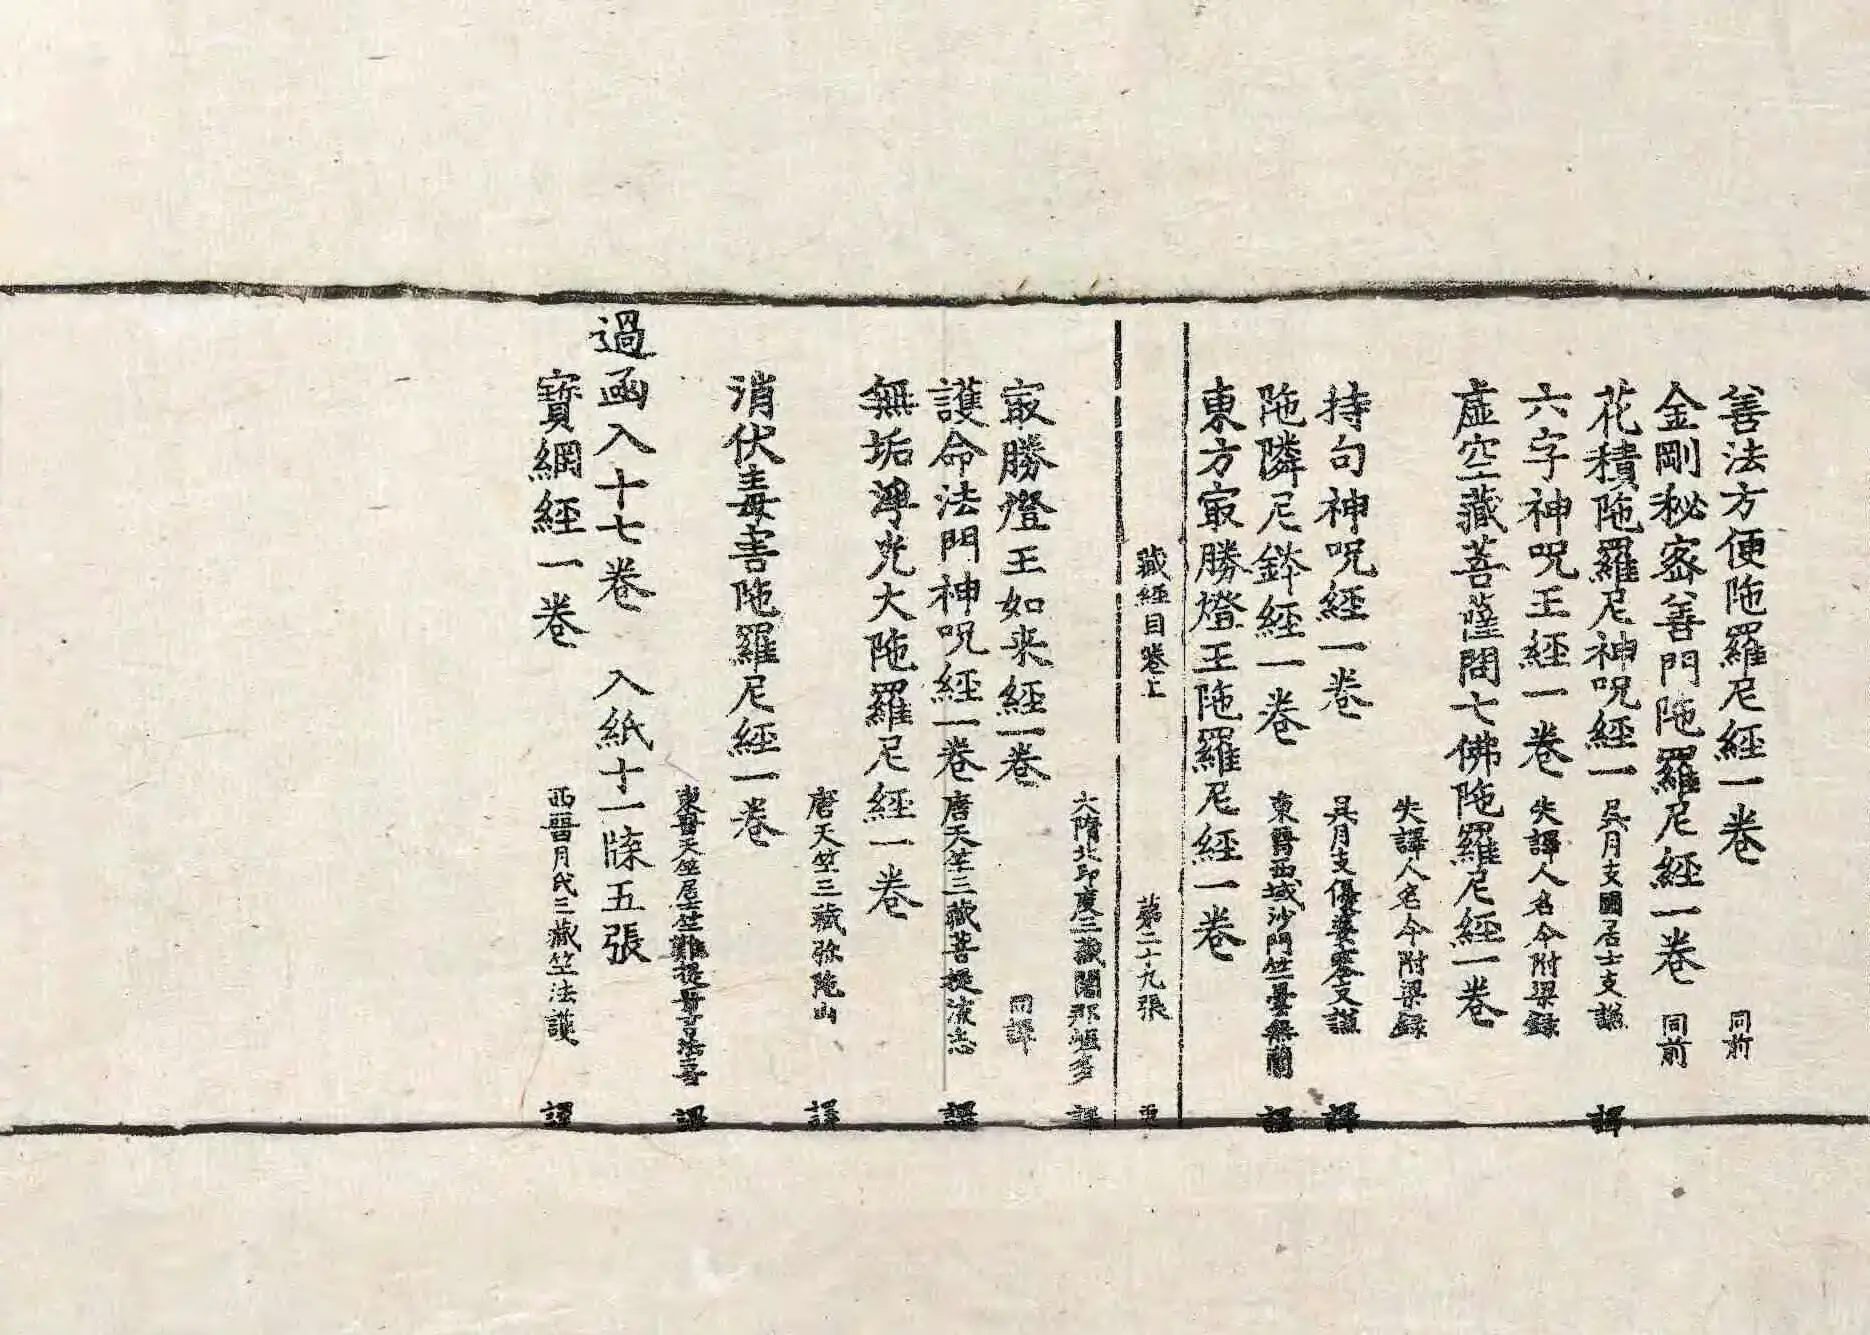 善法方便陁羅尼經一卷 同前
金剛秘密善門陁羅尼經一卷 同前
花積陁羅尼神呪經一 吳月支國居士支謙 譯
六字神呪王經一卷 失譯人名今附梁録
虛空藏菩薩問七佛陁羅尼經一卷
失譯人名今附梁録
持句神呪經一卷 吳月支優婆塞支謙 譯
陁隣尼鉢經一卷 東晉西域沙門竺曇無蘭 譯
東方㝡勝燈王陁羅尼經一卷
藏經目卷上 第二十九張
大隋北印度三藏闍那崛多 譯
㝡勝燈王如来經一卷 同譯
護命法門神呪經一卷 唐天竺三藏菩提流志 譯
無垢淨光大陁羅尼經一卷
唐天竺三藏弥陁山 譯
消伏毒害陁羅尼經一卷
東晉天竺居士竺難提晉言法喜 譯
過函入十七卷 入紙十一牒五張
寶網經一卷 西晉月氏三藏竺法護 譯